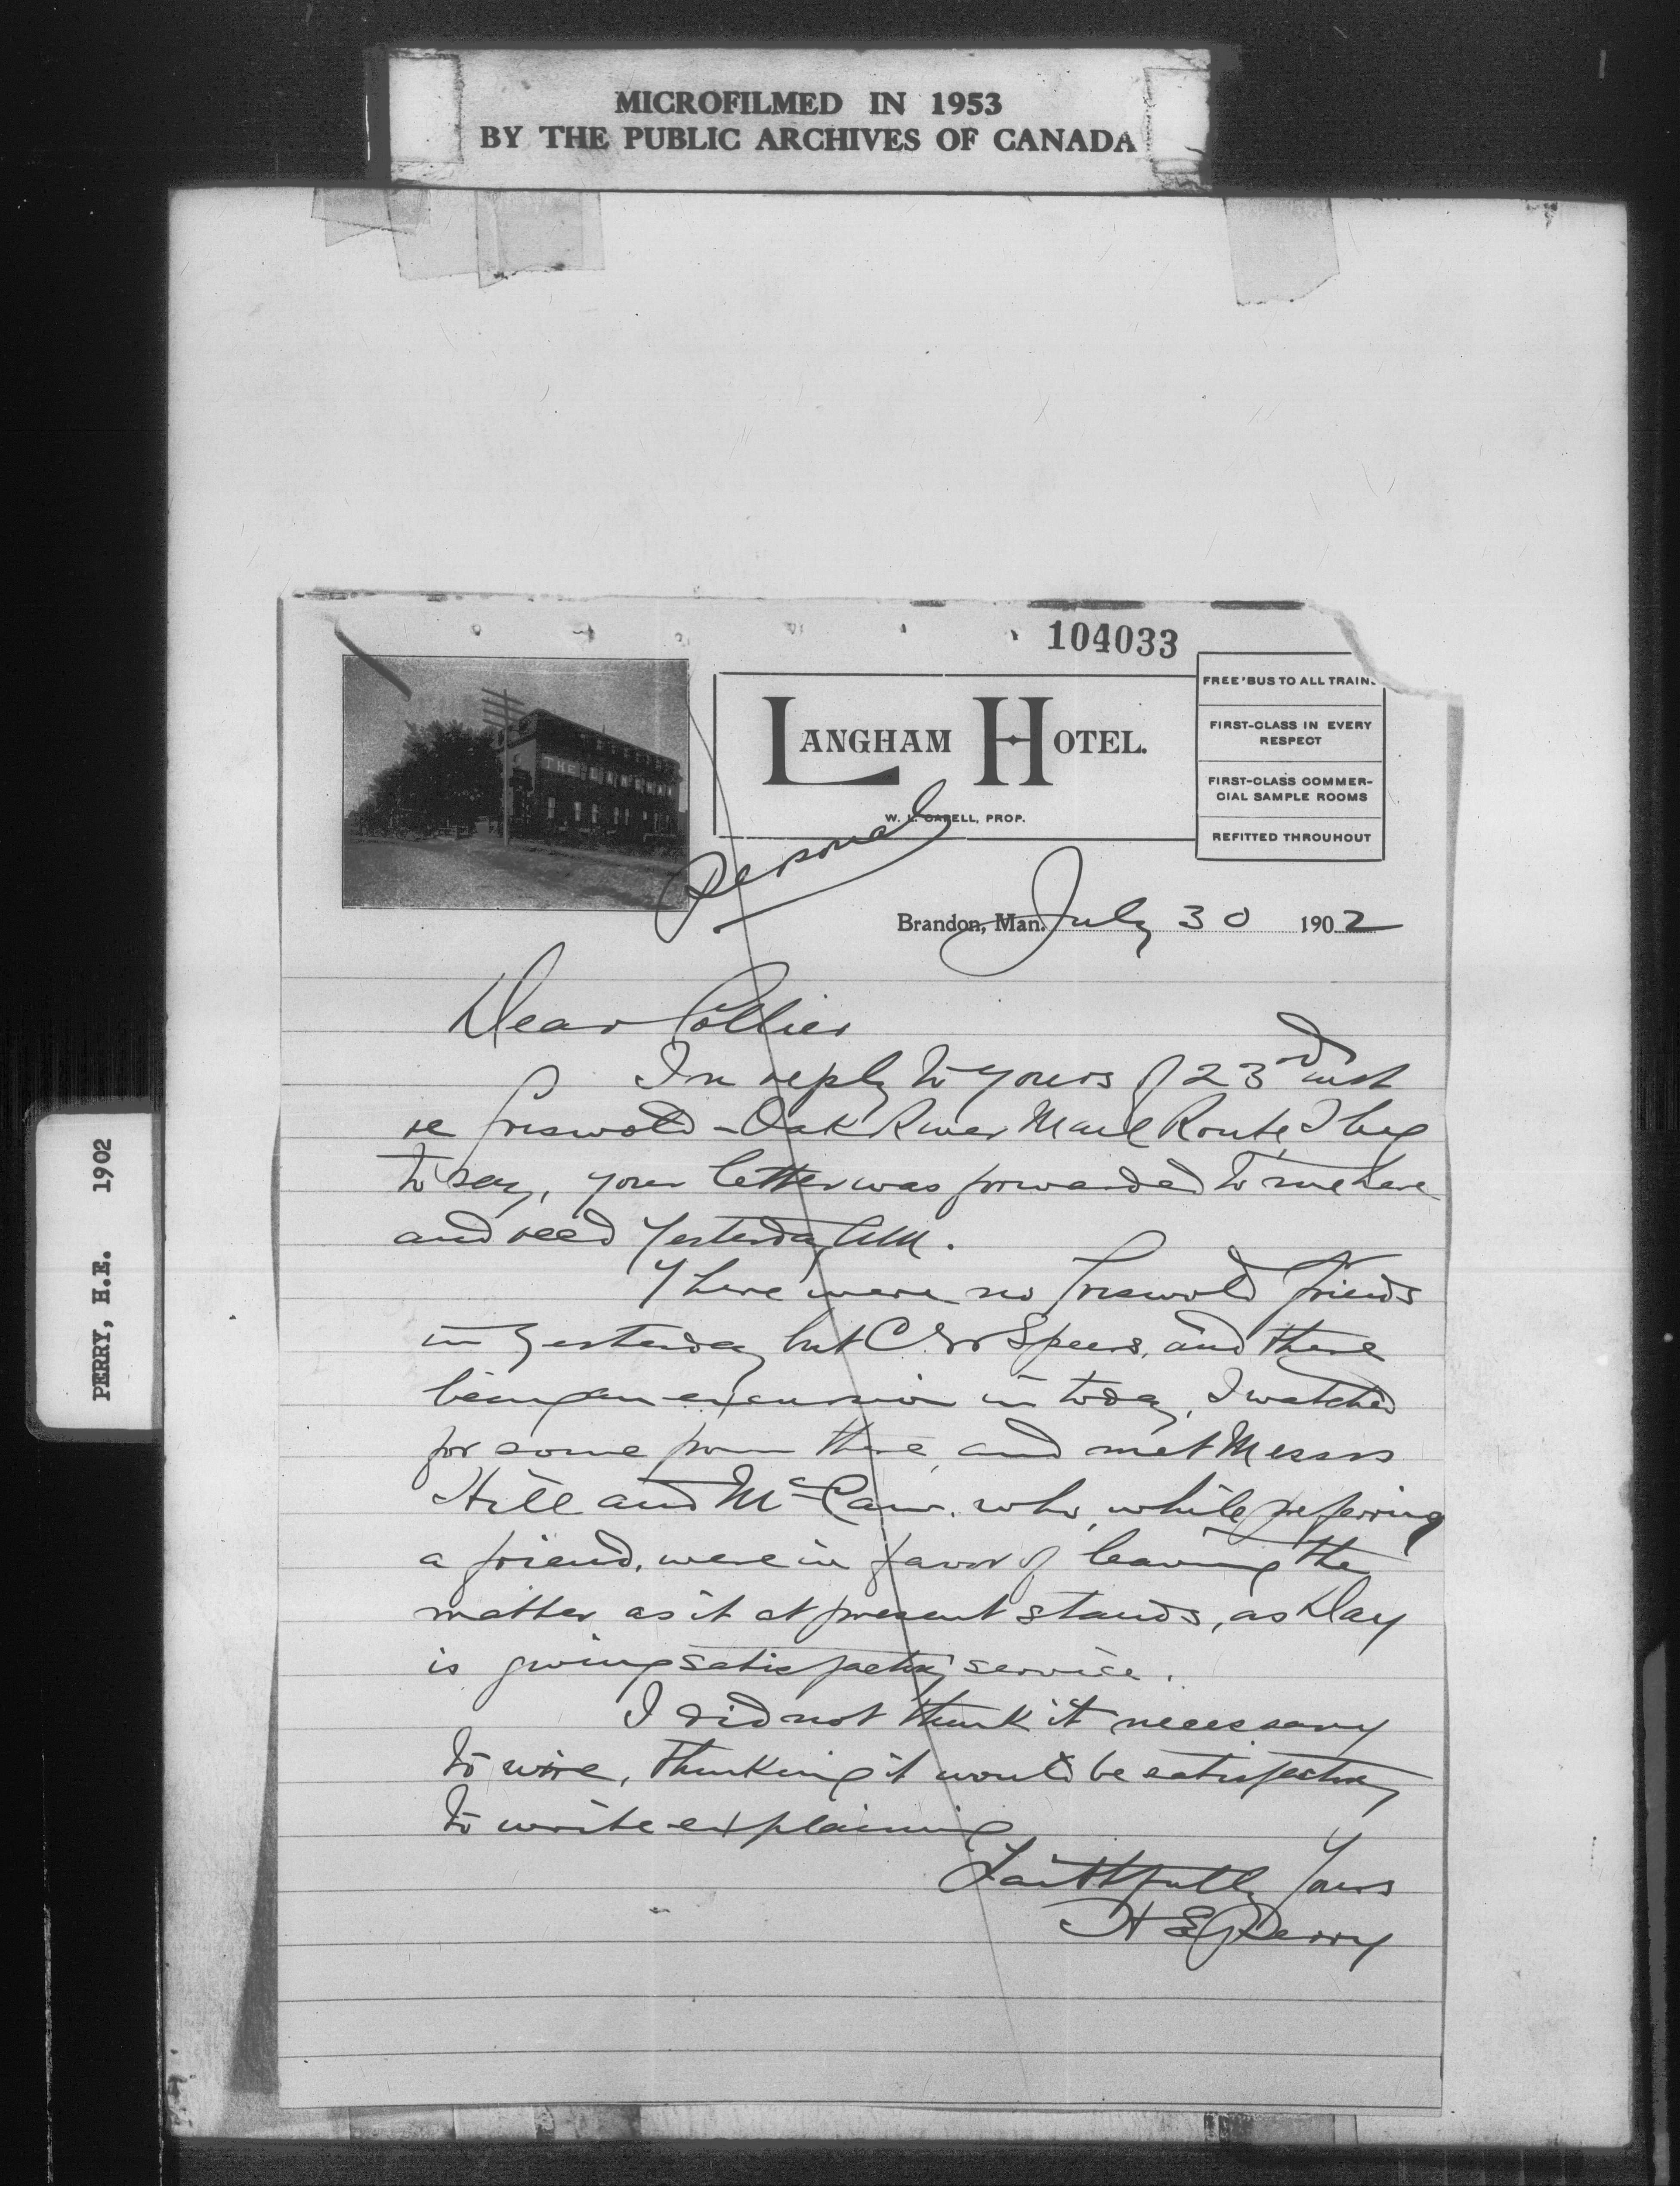 MICROFILMED IN 1953
BY THE PUBLIC ARCHIVES OF CANADA
PERRY, H.E. 1902
104033
THE LANGHAM
LANGHAM HOTEL.
W. L. CABELL, PROP.
FREE 'BUS TO ALL TRAINS
FIRST-CLASS IN EVERY
RESPECT
FIRST-CLASS COMMER-
CIAL SAMPLE ROOMS
REFITTED THROUHOUT
Personal
Brandon, Man. July 30 1902
Dear Collier
In reply to yours of 23rd inst
re Griswold - Oak River Mail Route, I beg
to say, your letter was forwarded to me here
and recd yesterday AM.
There were no Griswold friends
in yesterday but C. W. Speers, and there
being an excursion in today, I watched
for some from there, and met Messrs
Hill and McCaw. who, while preferring
a friend, were in favor of leaving the
matter as it at present stands, as Day
is giving satisfactory service.
I did not think it necessary
to wire, thinking it would be satisfactory
to write explaining
Faithfully Yours
H E Perry